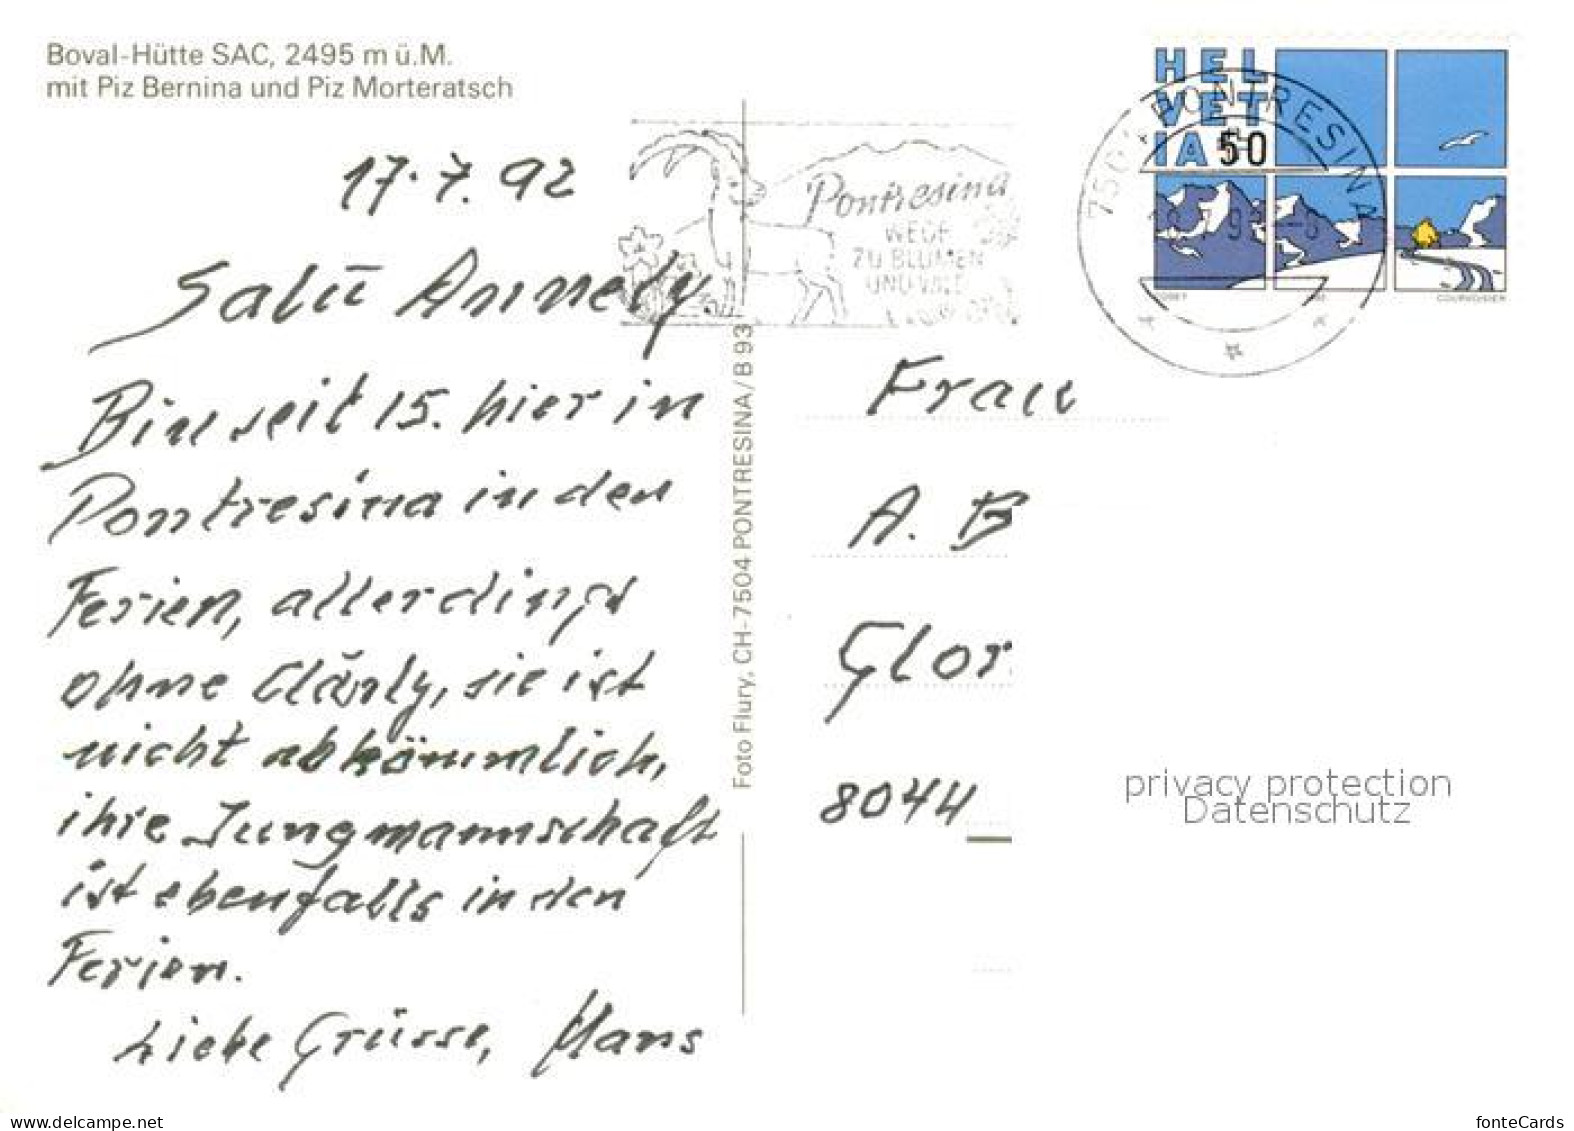 Boval-Hütte SAC, 2495 m ü.M.
mit Piz Bernina und Piz Morteratsch
17.7.92
Salü Annely
Bin seit 15. hier in
Pontresina in den
Ferien, allerdings
ohne Clärly, sie ist
nicht abkömmlich,
ihre Jungmannschaft
ist ebenfalls in den
Ferien.
Liebe Grüsse, Hans
Foto Flury, CH-7504 PONTRESINA/B 93
Pontresina
WEGE
ZU BLUMEN
UND
HEL
VET
IA 50
COURVOISIER
7504 PONTRESINA
Frau
A. B
Glor
8044
privacy protection
Datenschutz
www.delcampe.net
fonteCards